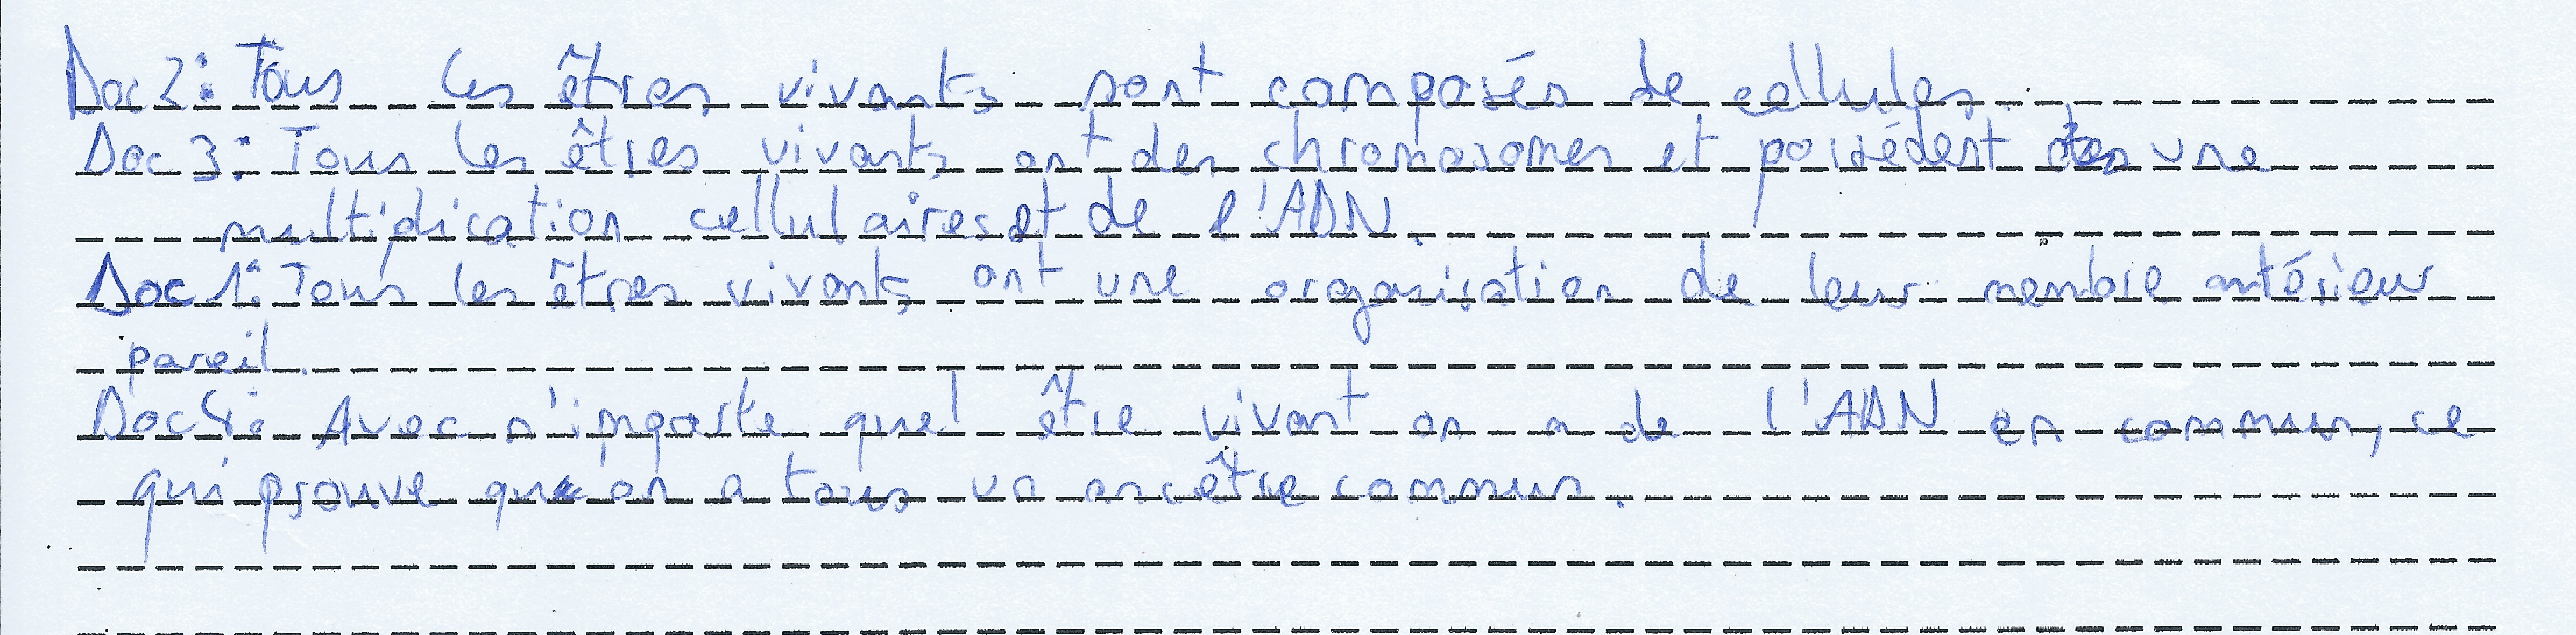 Doc 2: Tous les êtres vivants sont composés de cellules.
Doc 3: Tous les êtres vivants ont des chromosomes et possèdent une
multiplication cellulaires et de l'ADN.
Doc 1: Tous les êtres vivants ont une organisation de leur membre antérieur
pareil.
Doc 4: Avec n'importe quel être vivant on a de l'ADN en commun, ce
qui prouve qu'on a tous un ancêtre commun.